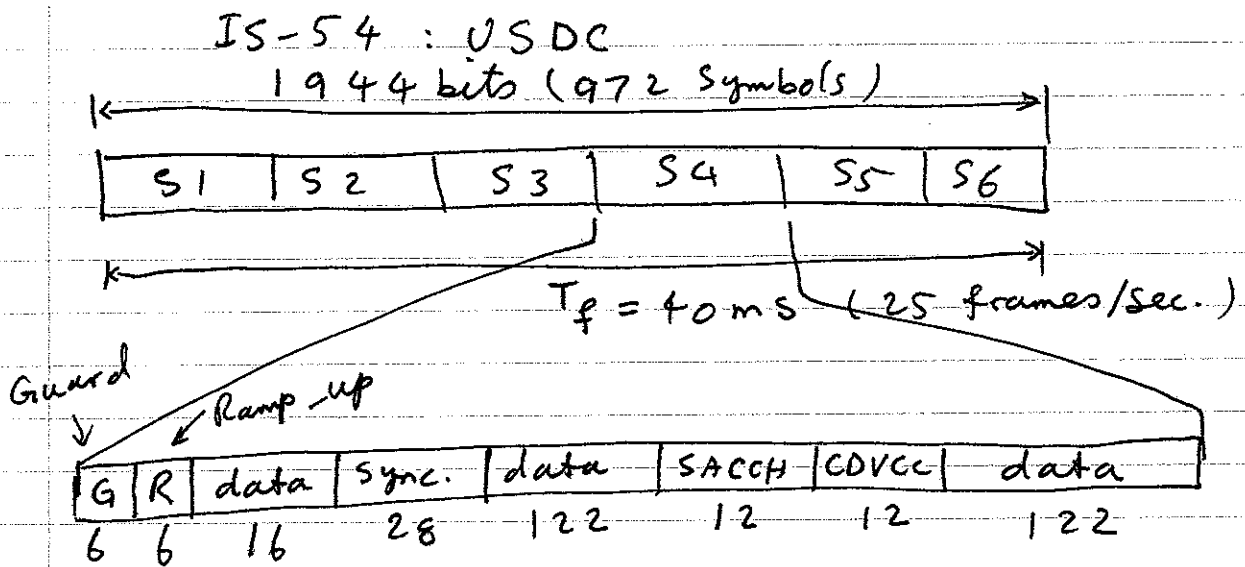 IS-54 : USDC
1944 bits (972 Symbols)
S1 S2 S3 S4 S5 S6
Tf = 40ms (25 frames/Sec.)
Guard
Ramp-up
G R data Sync. data SACCH CDVCC data
6 6 16 28 122 12 12 122